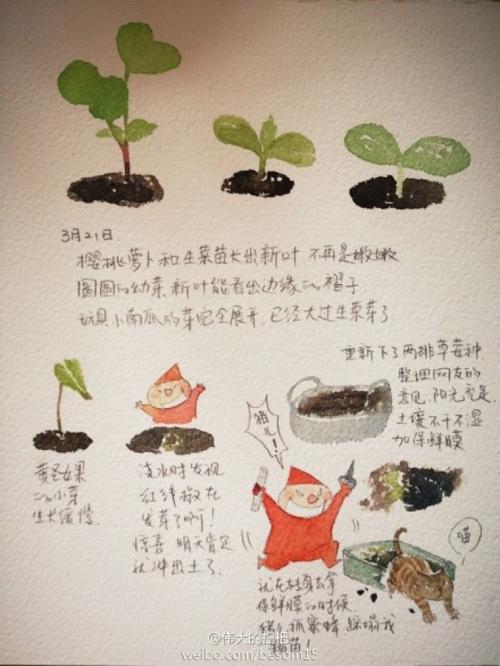 3月21日
樱桃萝卜和生菜苗长出新叶,不再是嫩嫩
圆圆的幼芽,新叶能看出边缘的褶子.
玩具小南瓜的芽完全展开,已经大过生菜芽了
重新下了两排草莓种
整理网友的
意见,阳光充足
土壤不干不湿
加保鲜膜
黄金如果
的小芽
生长缓慢.
浇水时发现
红辣椒在
发芽了啊!
惊喜 明天肯定
就冲出土了
猫儿!
喵
就在转身去拿
保鲜膜的时候
猫儿抓蜜蜂 踩塌我
苗!
@伟大的扫把
weibo.com/besom15